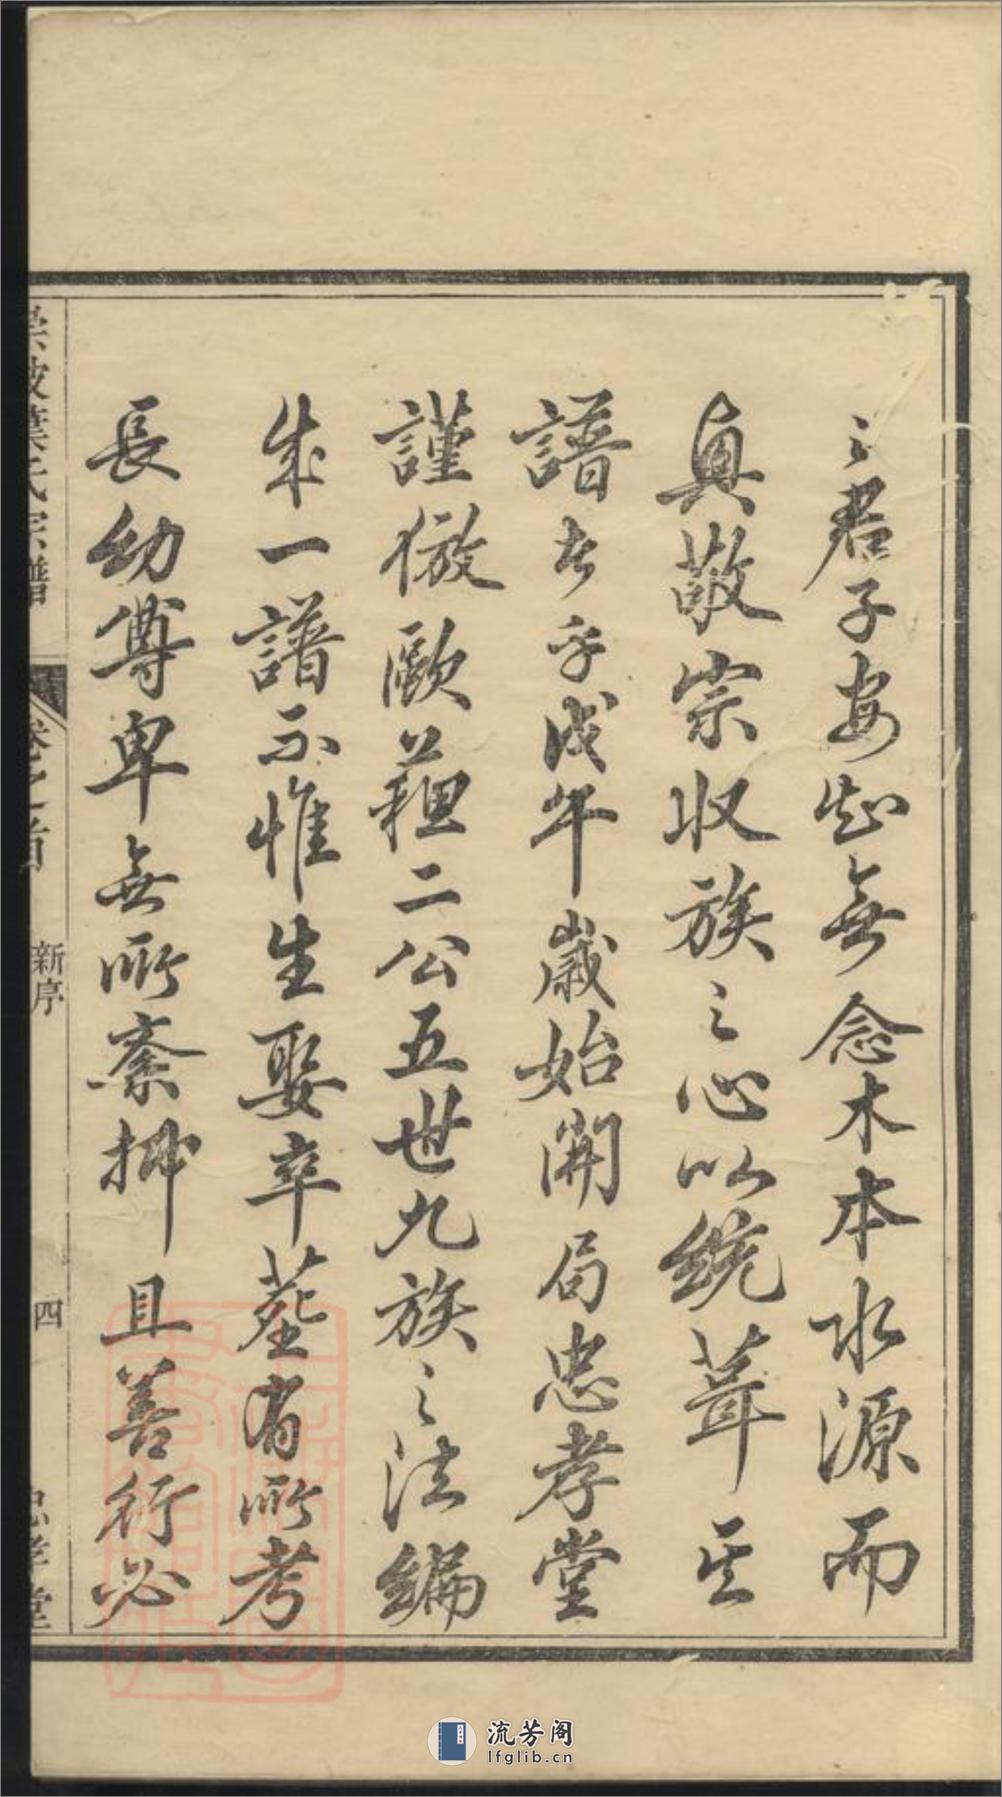 之君子安知無念木本水源而
真敬宗收族之心以統葺其
譜者乎戊午歲始開局忠孝堂
謹倣歐蘓二公五世九族之法編
成一譜不惟生娶卒塟有所考
長幼尊卑無所紊抑且善行必
葉氏宗譜
卷之首
新序
四
忠孝堂
流芳阁
lfglib.cn